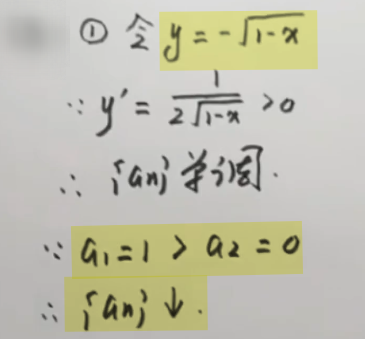 ① 令 y = -√(1-x)
∵ y' = 1/(2√(1-x)) > 0
∴ {an} 单调.
∵ a₁ = 1 > a₂ = 0
∴ {an} ↓.